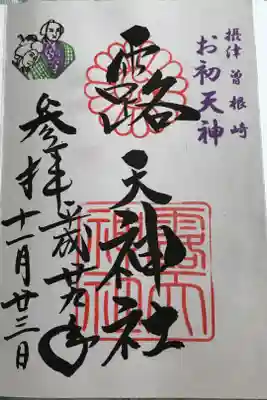 摂津 曽根崎
お初天神
露天神社
露天神社
平成廿九年
参拝
十一月廿三日